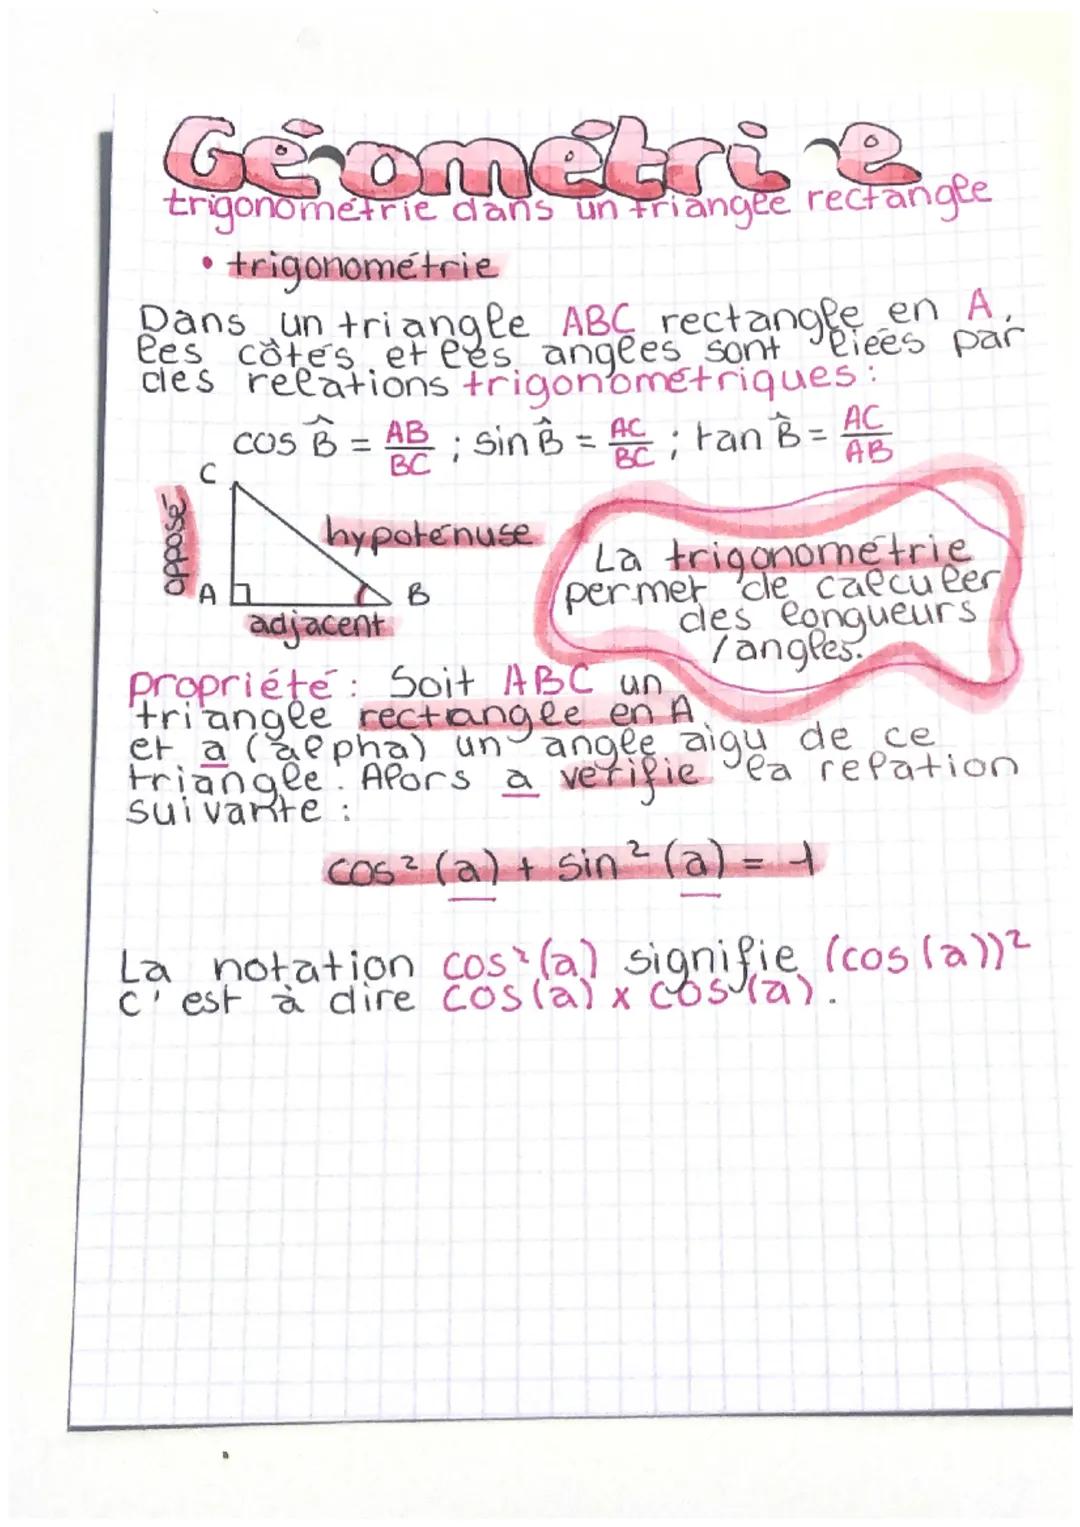 Géométrie
trigonométrie dans un triangle rectangle
• trigonométrie
Dans un triangle ABC rectangle en A,
les côtés et les angles sont liées par
des relations trigonométriques :
cos B̂ = AB/BC ; sin B̂ = AC/BC ; tan B̂ = AC/AB
C
opposé
hypoténuse
A
B
adjacent
La trigonométrie
permet de calculer
des longueurs
/angles.
propriété : Soit ABC un
triangle rectangle en A
et a (alpha) un angle aigu de ce
triangle. Alors a vérifie la relation
suivante :
cos² (a) + sin² (a) = 1
La notation cos²(a) signifie (cos(a))²
c'est à dire cos(a) x cos(a).